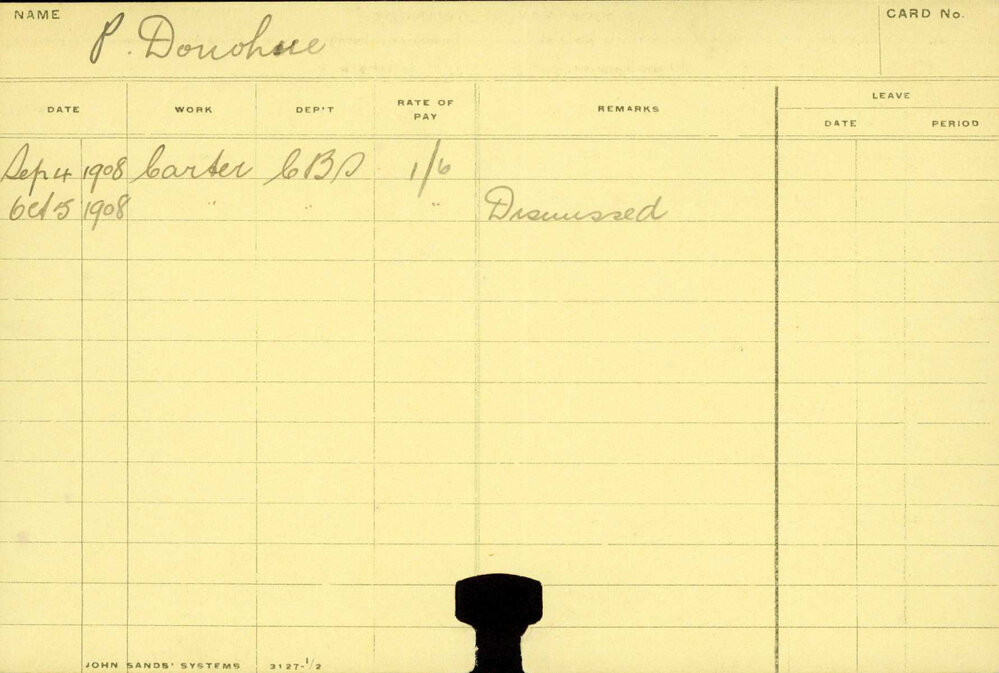 NAME P. Donohue CARD No.
DATE WORK DEP'T RATE OF PAY REMARKS LEAVE
DATE PERIOD
Sep 4 1908 Carter CBD 1/6
Oct 5 1908 " " " Dismissed
JOHN SANDS' SYSTEMS 3127-1/2